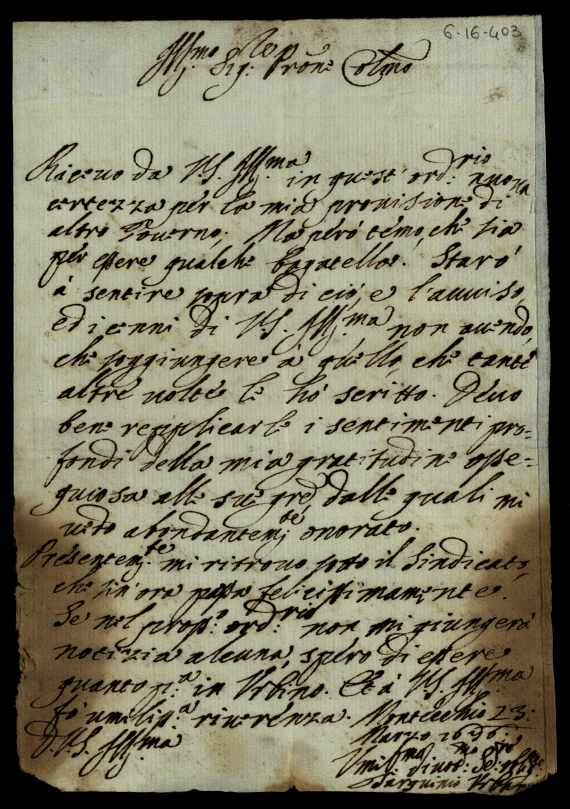 6-16-403
Ill:mo Sig:re Pron:e Col:mo
Riceuo da V.S. Ill:ma in quest' ord:rio nuoua
certezza per la mia prouisione di
altro Gouerno; Ma però temo, che sia
per essere qualche bagatella. Starò
à sentire sopra di ciò, e l'auuiso,
ed i cenni di V.S. Ill:ma non auendo,
che soggiungere à quello, che tante
altre uolte le hò scritto. Deuo
bene repplicarle i sentimenti pro-
fondi della mia gratitudine osse-
quiosa alle sue gre, dalle quali mi
uedo abondantem:te onorato.
Presentem:te mi ritrouo sotto il Sindicato,
che sin'ora passa felicissimamente.
Se nel pross:o ord:rio non mi giungerà
notizia alcuna, spero di essere
quanto p:a in Vrbino. Et à V.S. Ill:ma
fò umiliss:a riuerenza. Montecchio 23:
Marzo 1696:
D.V.S. Ill:ma
Vmil:mo diuot:mo Se:re
Tarquinio